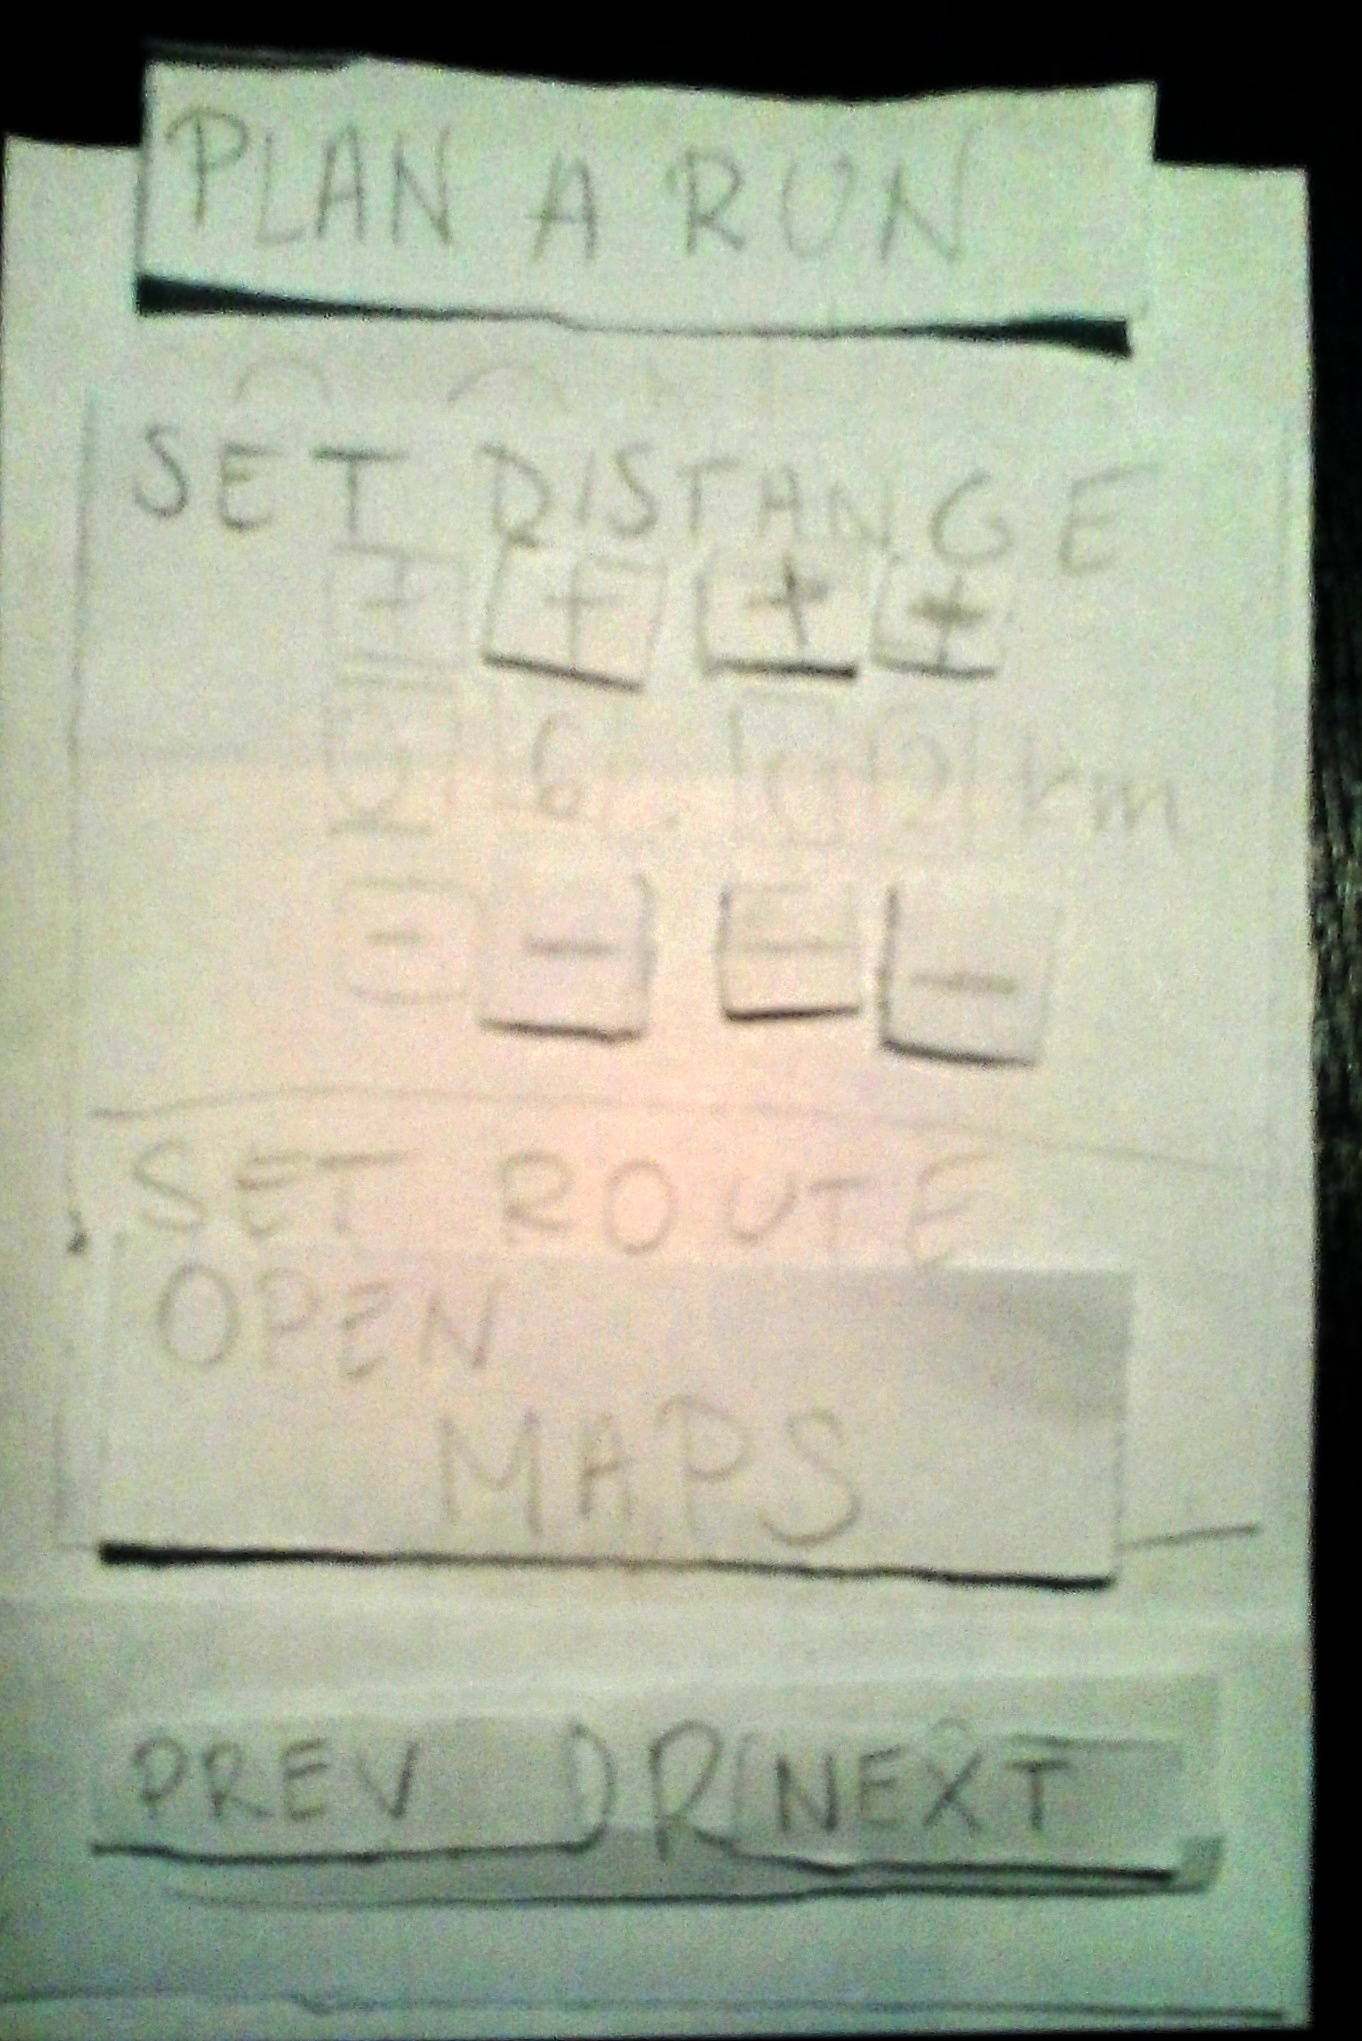 PLAN A RUN
SET DISTANCE
+ + + +
6 . 0 2 km
- - - -
SET ROUTE
OPEN
MAPS
PREV NEXT